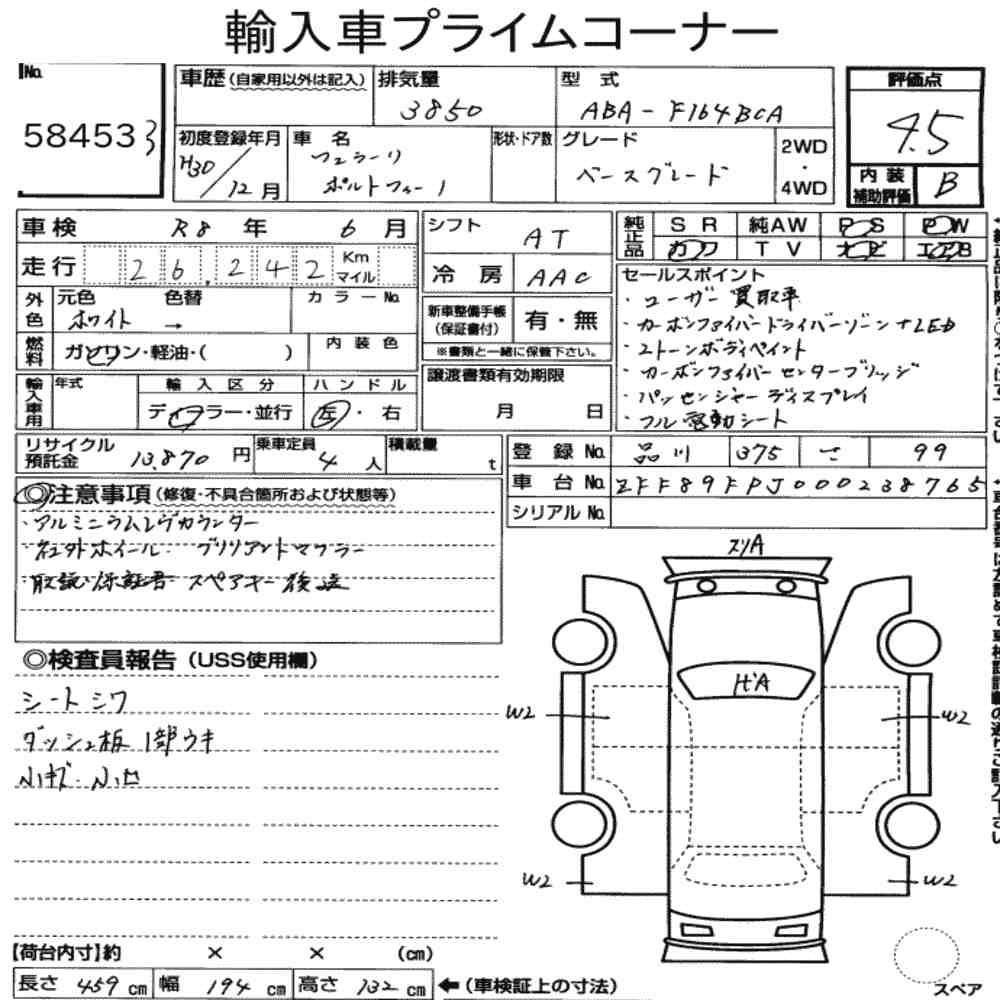 輸入車プライムコーナー
No. 58453 3
車歴(自家用以外は記入) 排気量 3850 型式 ABA-F164BCA 評価点 4.5
初度登録年月 H30/12月 車名 フェラーリ ポルトフィーノ 形状・ドア数 グレード ベースグレード 2WD・4WD 内装補助評価 B
車検 R8年 6月
走行 26,242 Km マイル
外色 元色 ホワイト 色替 → カラーNo.
燃料 ガソリン・軽油・( ) 内装色
輸入車用 年式 輸入区分 ディーラー・並行 ハンドル 左・右
シフト AT
冷房 AAC
新車整備手帳(保証書付) 有・無
※書類と一緒に保管下さい。
譲渡書類有効期限
月 日
純正品 SR 純AW PS PW
カワ TV ナビ エアB
セールスポイント
・ユーザー買取車
・カーボンファイバードライバーゾーン+LED
・2トーンボディペイント
・カーボンファイバーセンターブリッジ
・パッセンジャーディスプレイ
・フル電動シート
リサイクル預託金 13,870円 乗車定員 4人 積載量 t
登録No. 品川 375 99
車台No. ZFF89FPJ000238765
シリアルNo.
◎注意事項(修復・不具合箇所および状態等)
・アルミニウムレヴカウンター
・社外ホイール・ブリリアントマフラー
取説 保証書 スペアキー 後送
◎検査員報告(USS使用欄)
シートシワ
ダッシュ板1部ウキ
小キズ・小凹
スリA
ヒ゛A
W2
W2
W2
W2
スペア
【荷台内寸】約 × × (cm)
長さ 459 cm 幅 194 cm 高さ 132 cm ←(車検証上の寸法)